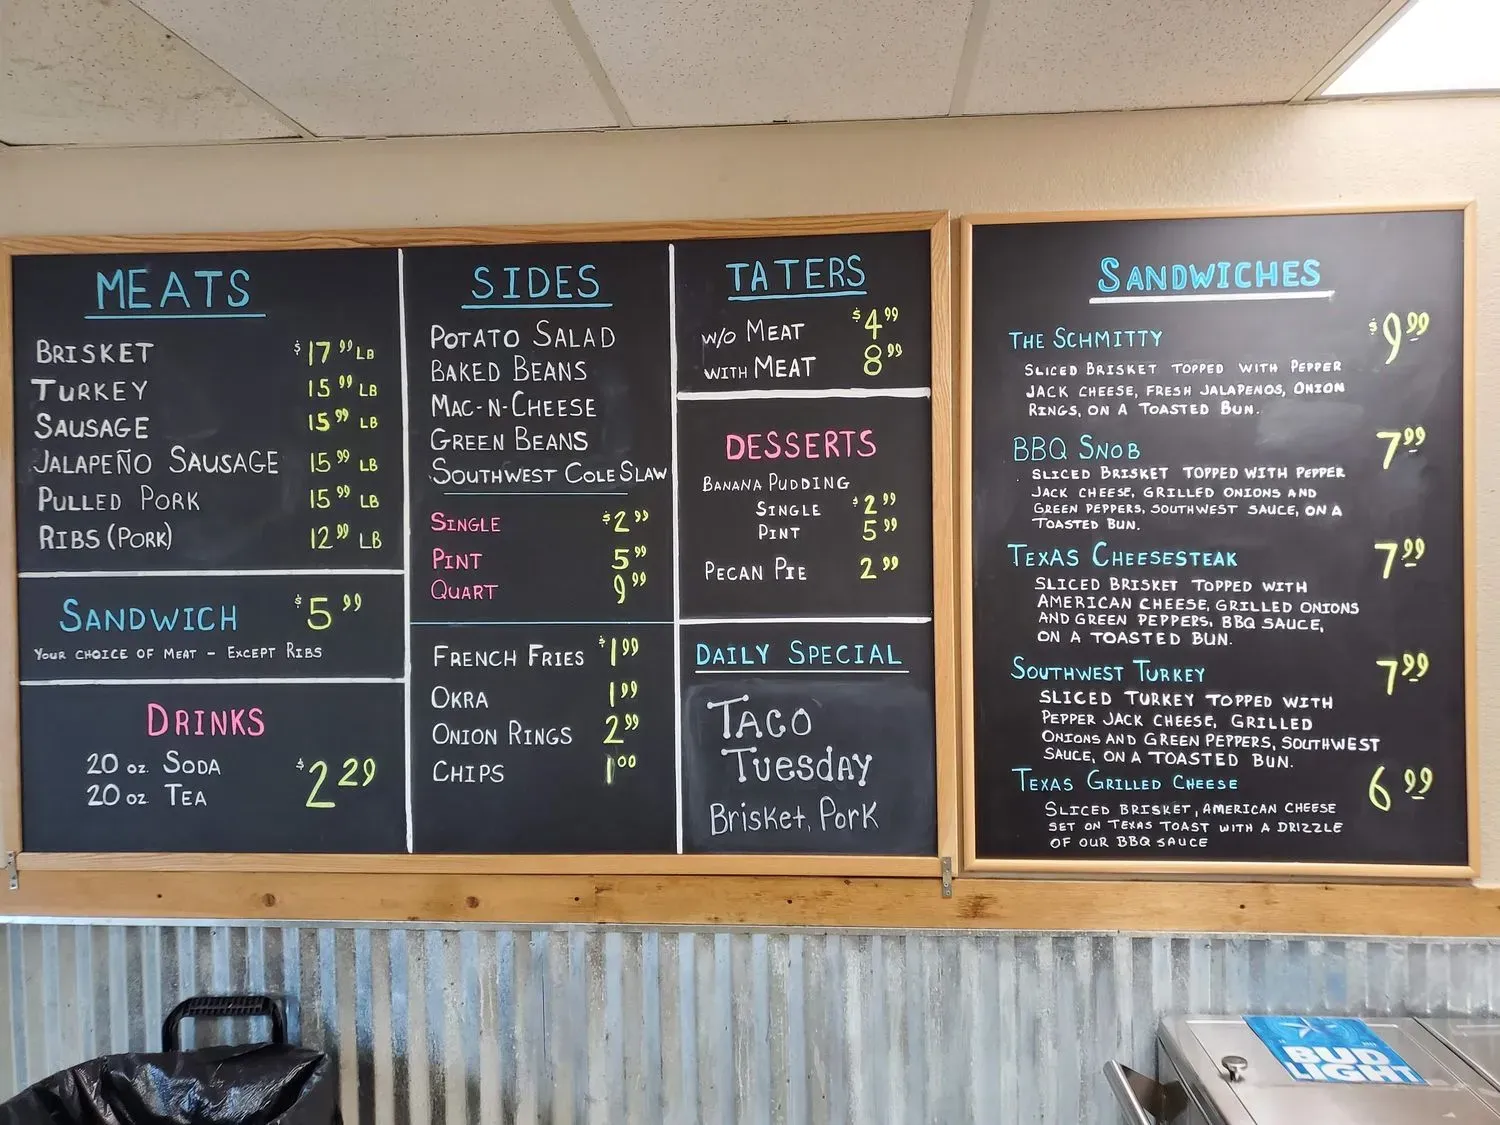 MEATS
BRISKET $17.99 LB
TURKEY 15.99 LB
SAUSAGE 15.99 LB
JALAPEÑO SAUSAGE 15.99 LB
PULLED PORK 15.99 LB
RIBS (PORK) 12.99 LB
SANDWICH $5.99
YOUR CHOICE OF MEAT - EXCEPT RIBS
DRINKS
20 OZ. SODA
$2.29
20 OZ TEA
SIDES
POTATO SALAD
BAKED BEANS
MAC-N-CHEESE
GREEN BEANS
SOUTHWEST COLE SLAW
SINGLE $2.99
PINT 5.99
QUART 9.99
FRENCH FRIES $1.99
OKRA 1.99
ONION RINGS 2.99
CHIPS 1.00
TATERS
W/O MEAT $4.99
WITH MEAT 8.99
DESSERTS
BANANA PUDDING
SINGLE $2.99
PINT 5.99
PECAN PIE 2.99
DAILY SPECIAL
TACO
TUESDAY
Brisket, Pork
SANDWICHES
THE SCHMITTY $9.99
SLICED BRISKET TOPPED WITH PEPPER
JACK CHEESE, FRESH JALAPENOS, ONION
RINGS, ON A TOASTED BUN.
BBQ SNOB 7.99
SLICED BRISKET TOPPED WITH PEPPER
JACK CHEESE, GRILLED ONIONS AND
GREEN PEPPERS, SOUTHWEST SAUCE, ON A
TOASTED BUN.
TEXAS CHEESESTEAK 7.99
SLICED BRISKET TOPPED WITH
AMERICAN CHEESE, GRILLED ONIONS
AND GREEN PEPPERS, BBQ SAUCE,
ON A TOASTED BUN.
SOUTHWEST TURKEY 7.99
SLICED TURKEY TOPPED WITH
PEPPER JACK CHEESE, GRILLED
ONIONS AND GREEN PEPPERS, SOUTHWEST
SAUCE, ON A TOASTED BUN.
TEXAS GRILLED CHEESE 6.99
SLICED BRISKET, AMERICAN CHEESE
SET ON TEXAS TOAST WITH A DRIZZLE
OF OUR BBQ SAUCE
BUD
LIGHT